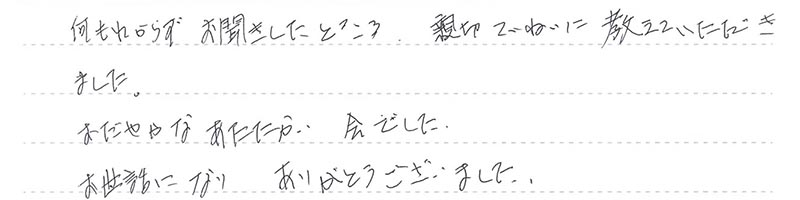 何もわからず お聞きしたところ、親切ていねいに教えていただき
ました。
おだやかな あたたかい 会でした。
お世話になり ありがとうございました。